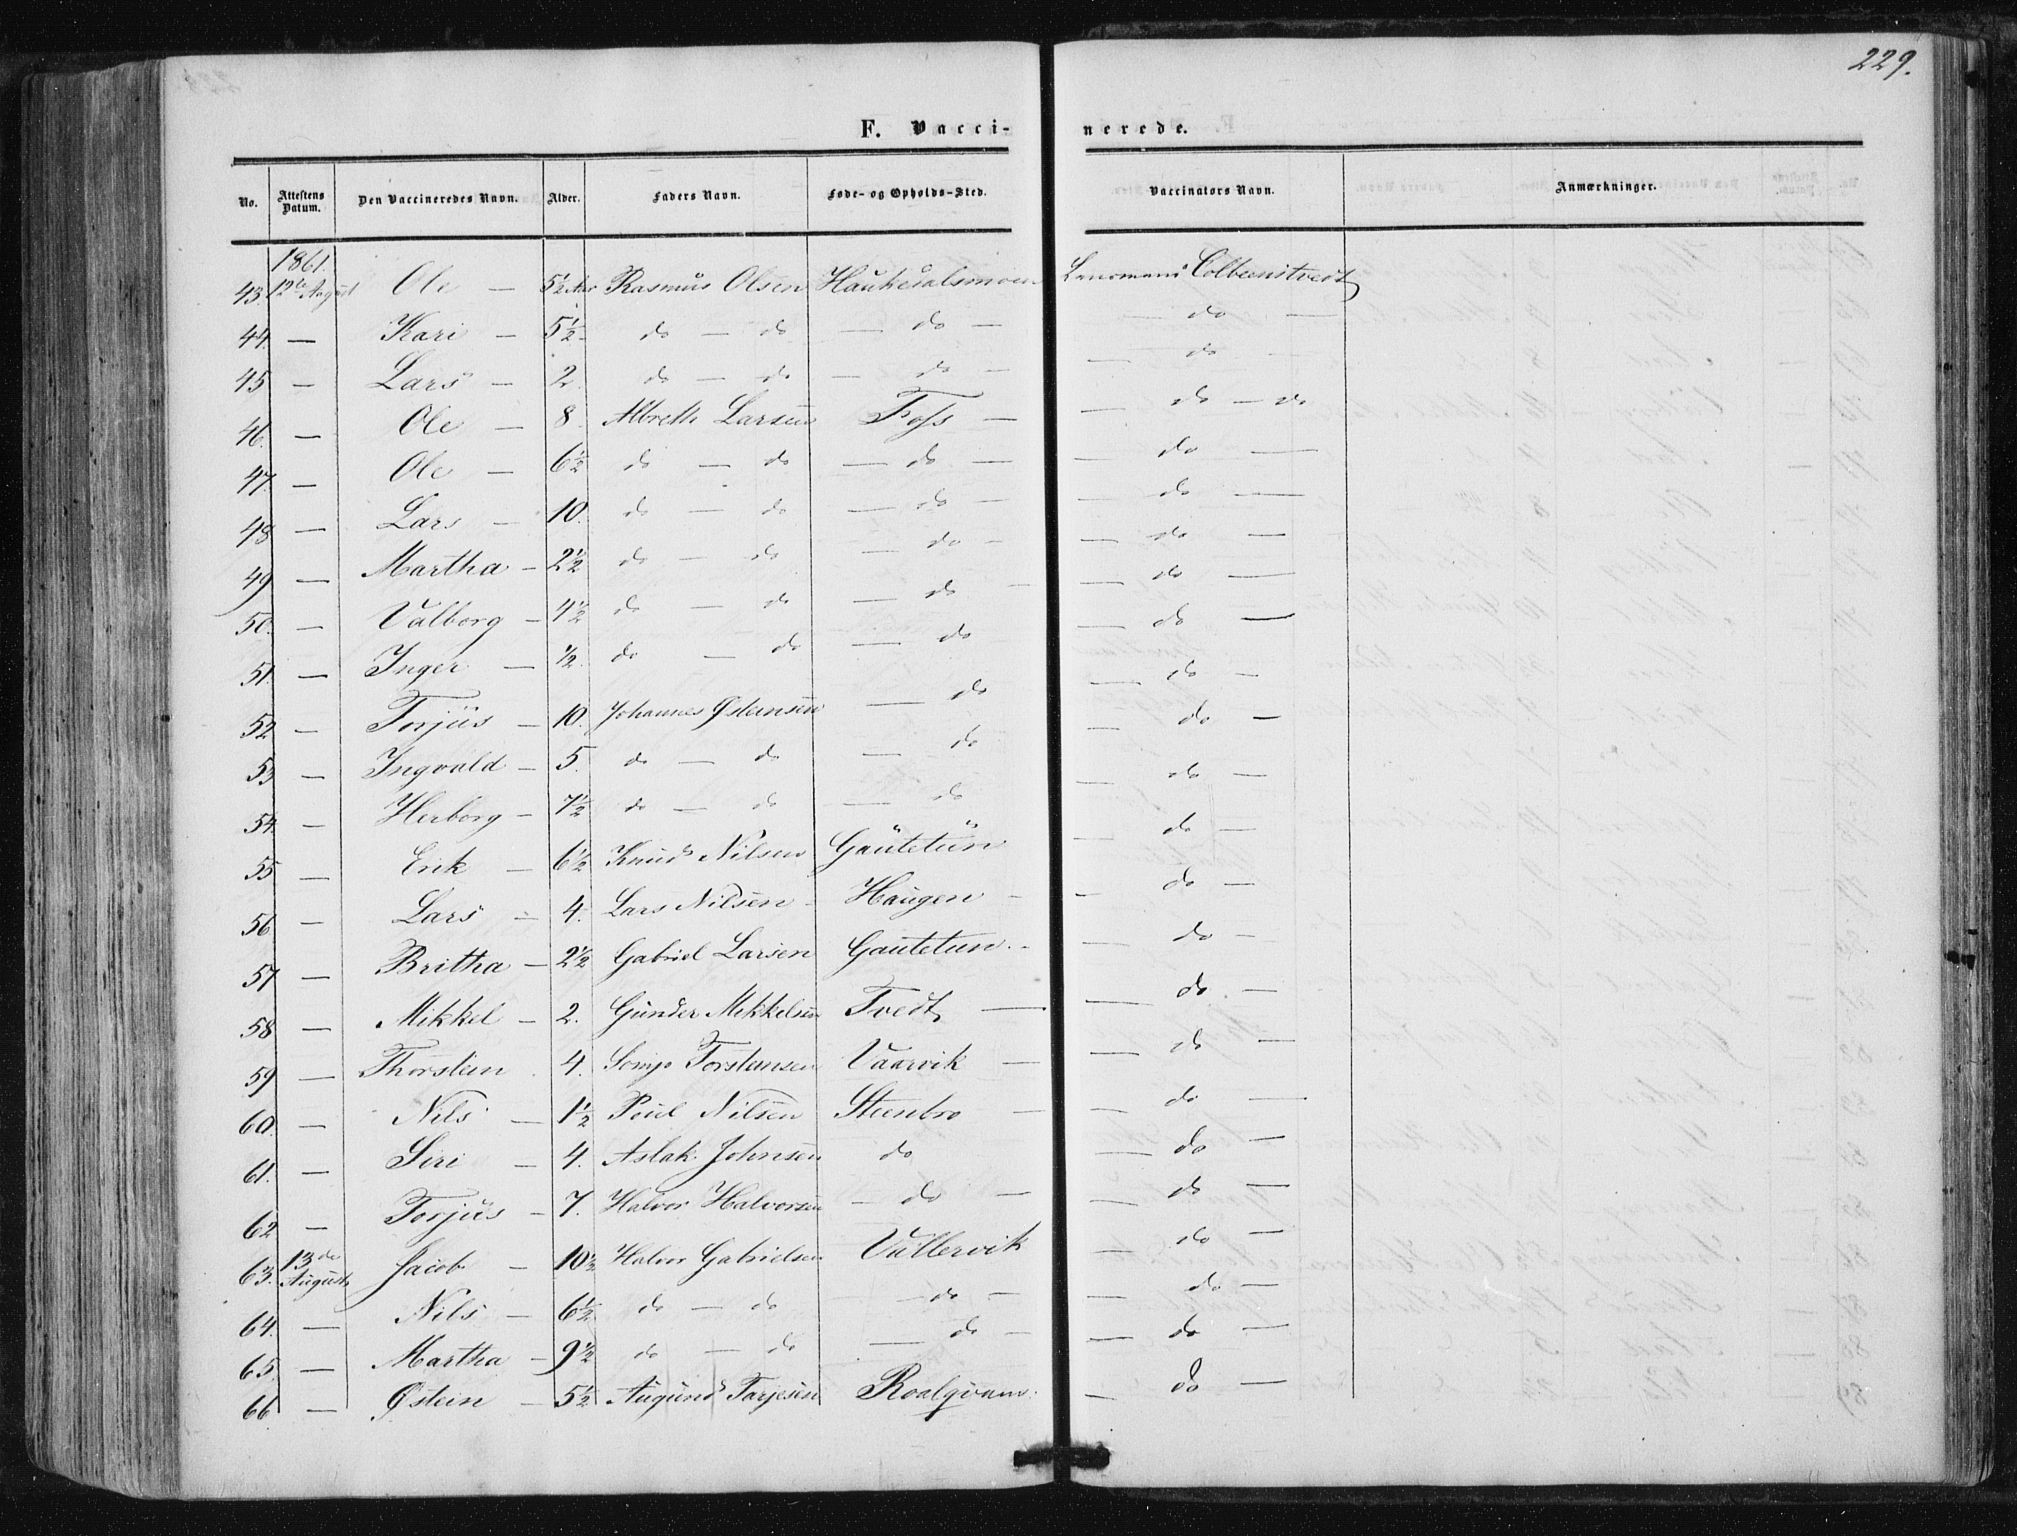 229.
F. Vaccinerede.
No. Attestens Datum. Den Vaccineredes Navn. Alder. Faders Navn. Føde- og Opholds-Sted. Vaccinators Navn. Anmærkninger.
1861.
43. 12te August Ole — 5½ Aar Rasmus Olsen Haukedalsmoen Colbeinstvedt
44. — Kari — 5½ do — do — do — — do —
45 — Lars — 2. do — do — do — — do
46. — Ole — 8. Albreth Larsen Foss — — do — do
47. — Ole — 6½ do — do — do — — do —
48 — Lars — 10. do — do — do — — do —
49 — Martha — 2½ do — do — do — — do —
50. — Valborg — 4½ do — do — do — — do —
51. — Inger — ½. do — do — do — do —
52 — Torjus — 10. Johannes Østensen — do — do —
53 — Ingvald — 5. do — do — do — do —
54. — Herborg — 7½ do — do — do — do —
55 — Erik — 6½ Knud Nilsen Gautetun — do —
56 — Lars — 4. Lars Nilsen Haugen — do —
57 — Britha — 2½ Gabriel Larsen Gautetun — do —
58 — Mikkel — 2. Gunder Mikkelsen Tvedt — — do —
59 — Thorstein 4. Torstensen Vaarvik — — do —
60. — Nils — 1½ Poul Nilsen Steenbro — — do —
61. — Siri — 4. Aslak Johnsen do — do —
62 — Torjus — 7. Halvor Halvorsen — do — — do —
63. 13de August Jacob — 10½ Halvor Gabrielsen Vallervik — do —
64. — Nils — 6½ do — do — do — — do —
65. — Martha — 9½ do — do — do — — do —
66 — Østein — 5½ Augund Tarjesen Roalqvam. — do —